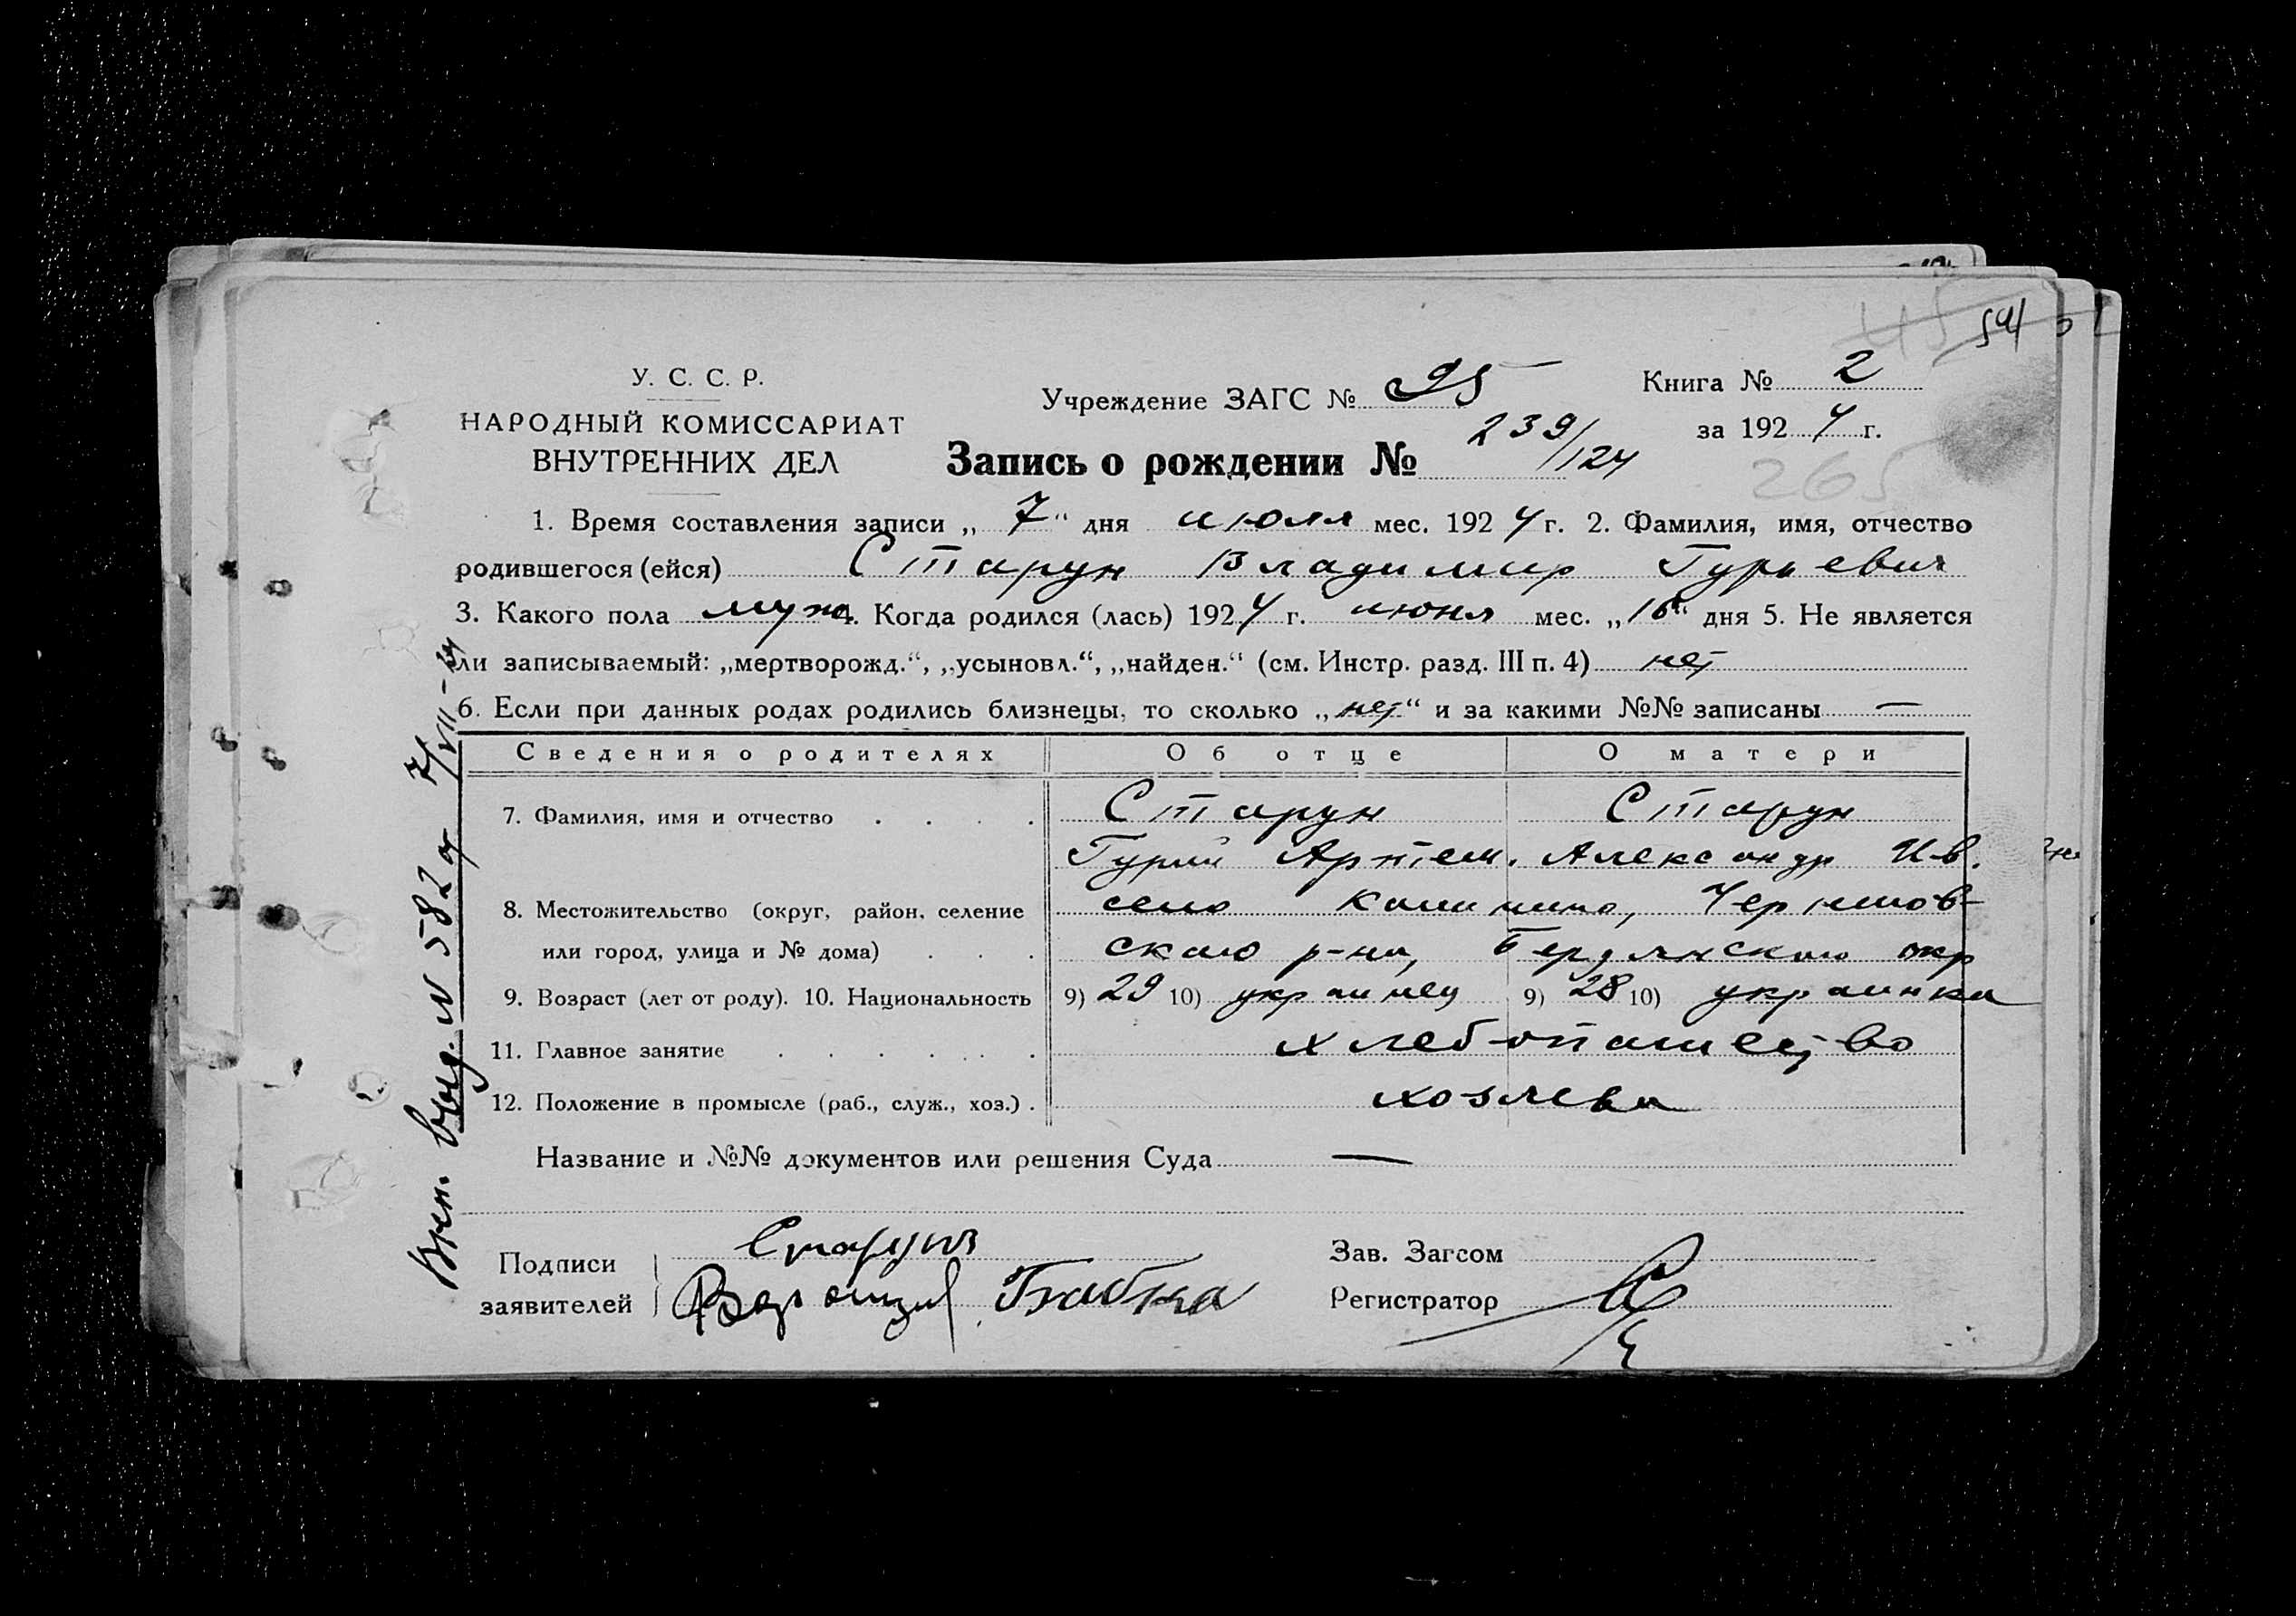 54
У. С. С. Р.
НАРОДНЫЙ КОМИССАРИАТ
ВНУТРЕННИХ ДЕЛ
Учреждение ЗАГС № 95
Книга № 2
за 1924 г.
Запись о рождении № 239/124
265
1. Время составления записи „ 7 “ дня июля мес. 1924 г. 2. Фамилия, имя, отчество
родившегося (ейся) Старун Владимир Гурьевич
3. Какого пола муж. 4. Когда родился (лась) 1924 г. июня мес. „16“ дня 5. Не является
ли записываемый: „мертворожд.“, „усыновл.“, „найден.“ (см. Инстр. разд. III п. 4) нет
6. Если при данных родах родились близнецы, то сколько „нет“ и за какими №№ записаны —
Сведения о родителях Об отце О матери
7. Фамилия, имя и отчество . . . . Старун Старун
Гурий Артем. Александр Ив.
8. Местожительство (округ, район, селение село Чернигов-
или город, улица и № дома) . . . ского р-на, Бердянского окр
9. Возраст (лет от роду). 10. Национальность 9) 29 10) украинец 9) 28 10) украинка
11. Главное занятие . . . . . . хлебопашество
12. Положение в промысле (раб., служ., хоз.) . хозяева
Название и №№ документов или решения Суда —
Подписи
заявителей
Старун
Зав. Загсом
Регистратор
выд. N 582 от 7/VII-24